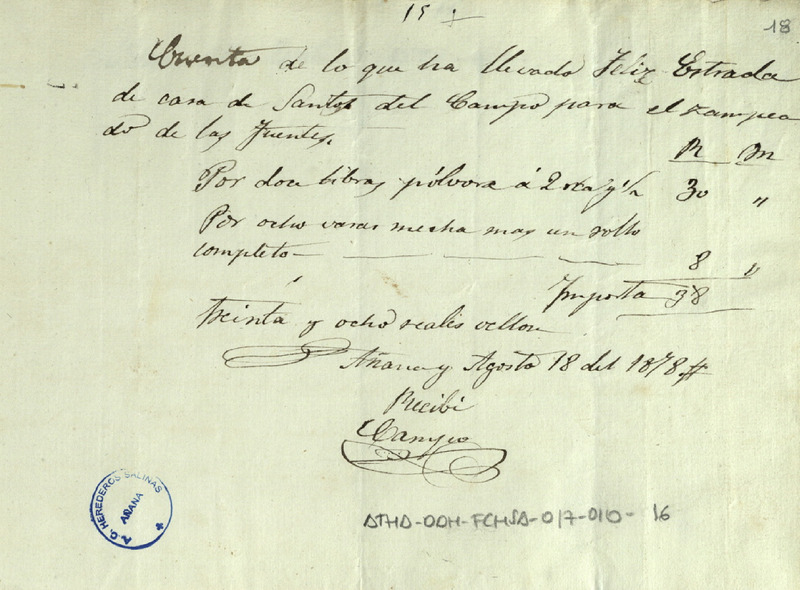 15 +
18
Cuenta de lo que ha llevado Feliz Estrada
de casa de Santos del Campo para el zampea
do de las fuentes.
R M
Por doce libras pólvora á 2 rea y 1/2 30 "
Por ocho varas mecha mas un rollo
completo 8 "
Importa 38
treinta y ocho reales vellon
Añana y Agosto 18 del 1878
Recibi
Campo
A.C. HEREDEROS SALINAS
AÑANA
ATHA-DAH-FCHSA-017-010-16